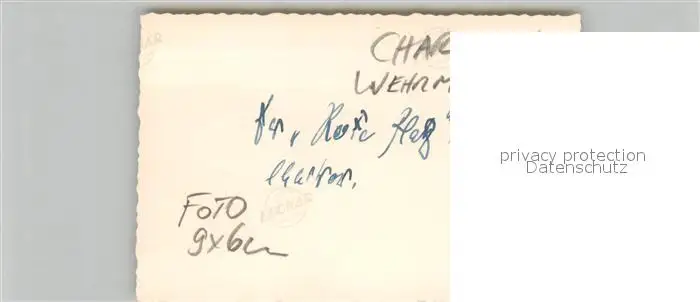 CHAR
WEHRM
Der „Rote Platz"
Charkow.
FOTO
9x6cm
privacy protection
Datenschutz